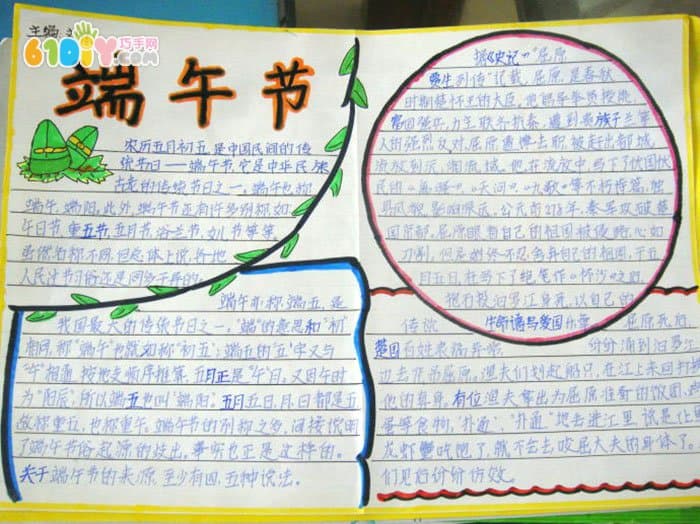 主编
61DIY巧手网
端午节
农历五月初五,是中国民间的传
统节日——端午节,它是中华民族
古老的传统节日之一。端午也称
端午,端阳。此外,端午节还有许多别称,如:
午日节、重五节,五月节、浴兰节、
虽然名称不同,但总体上说,各地
人民过节习俗还是同多于异的。
端午亦称端五,是
我国最大的传统节日之一。"端"的意思和"初"
相同,称"端午"也就如称"初五";端五的"五"字又与
"午"相通,按地支顺序推算,五月正是"午"月。又因午时
为"阳辰",所以端五也叫"端阳"。五月五日,月日都是五
故称重五,也称重午。端午节的别称之多,间接说明
了端午节俗起源的歧出。事实也正是这样的。
关于端午节的来源,至少有四、五种说法。
据《史记》"屈原
列传"记载,屈原,是春秋
时期楚怀王的大臣。他倡导举贤授能,
富国强兵,力主联齐抗秦,遭到贵族子兰等
人的强烈反对,屈原遭馋去职,被赶出都城,
流放到沅、湘流域。他在流放中,写下了忧国忧
民的《离骚》、《天问》、《九歌》等不朽诗篇,独
具风貌,影响深远。公元前278年,秦军攻破楚
国京都。屈原眼看自己的祖国被侵略,心如
刀割,但是始终不忍舍弃自己的祖国,于五
月五日,在写下了绝笔作《怀沙》之后,
抱石投汨罗江身死,以自己的
传说 生命谱与爱国 屈原死后
楚国百姓哀痛异常, 纷纷涌到汨罗江
边去凭吊屈原。渔夫们划起船只,在江上来回打捞
他的真身。有位渔夫拿出为屈原准备的饭团、
蛋等食物,"扑通"、"扑通"地丢进江里,说是让
龙虾蟹吃饱了,就不会去咬屈大夫的身体了。
们见后纷纷仿效。